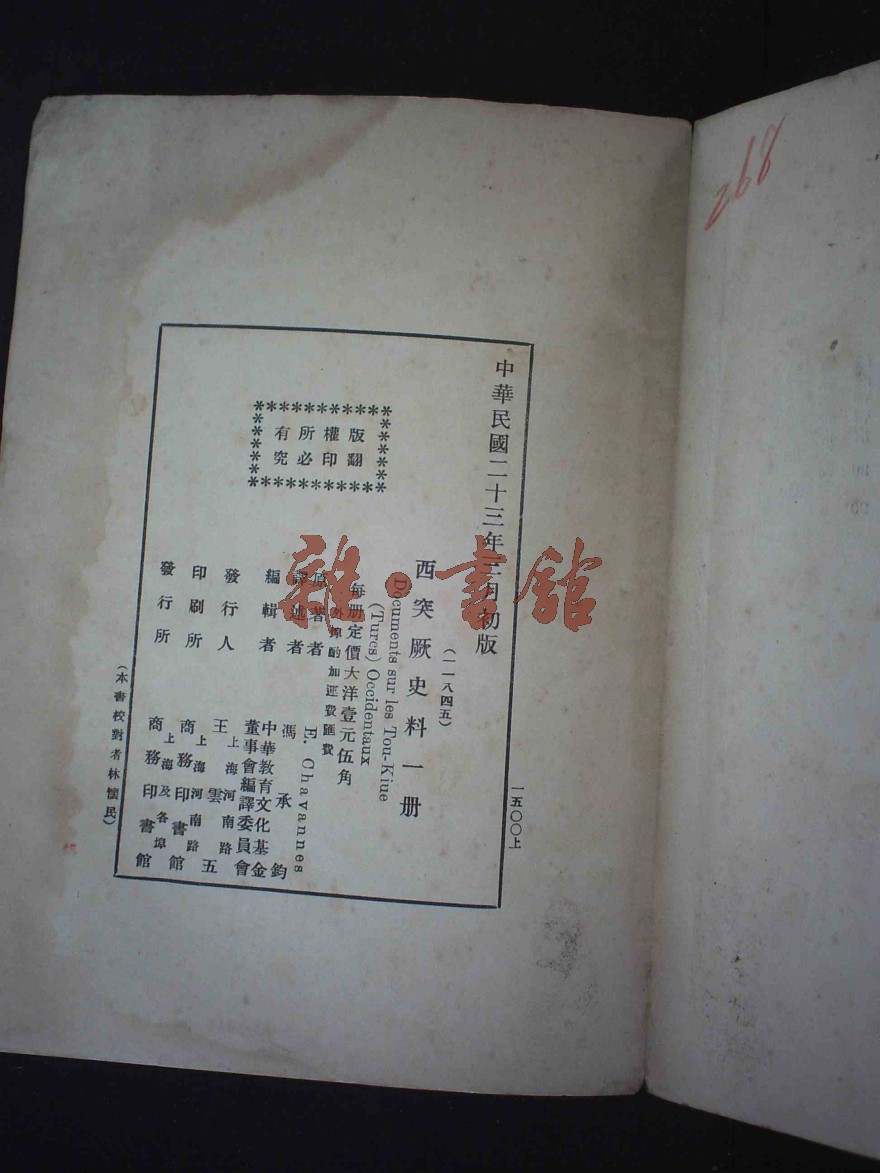 268
中華民國二十三年三月初版
版權所有
翻印必究
(一一八四五)
西突厥史料一册
Documents sur les Tou-Kiue
(Turcs) Occidentaux
每册定價大洋壹元伍角
外埠酌加運費匯費
原著者 E. Chavannes
譯述者 馮承鈞
編輯者 中華教育文化基金
董事會編譯委員會
發行人 王雲五
上海河南路
印刷所 商務印書館
上海河南路
發行所 商務印書館
上海及各埠
(本書校對者林懷民)
一五〇〇上
雜·書館